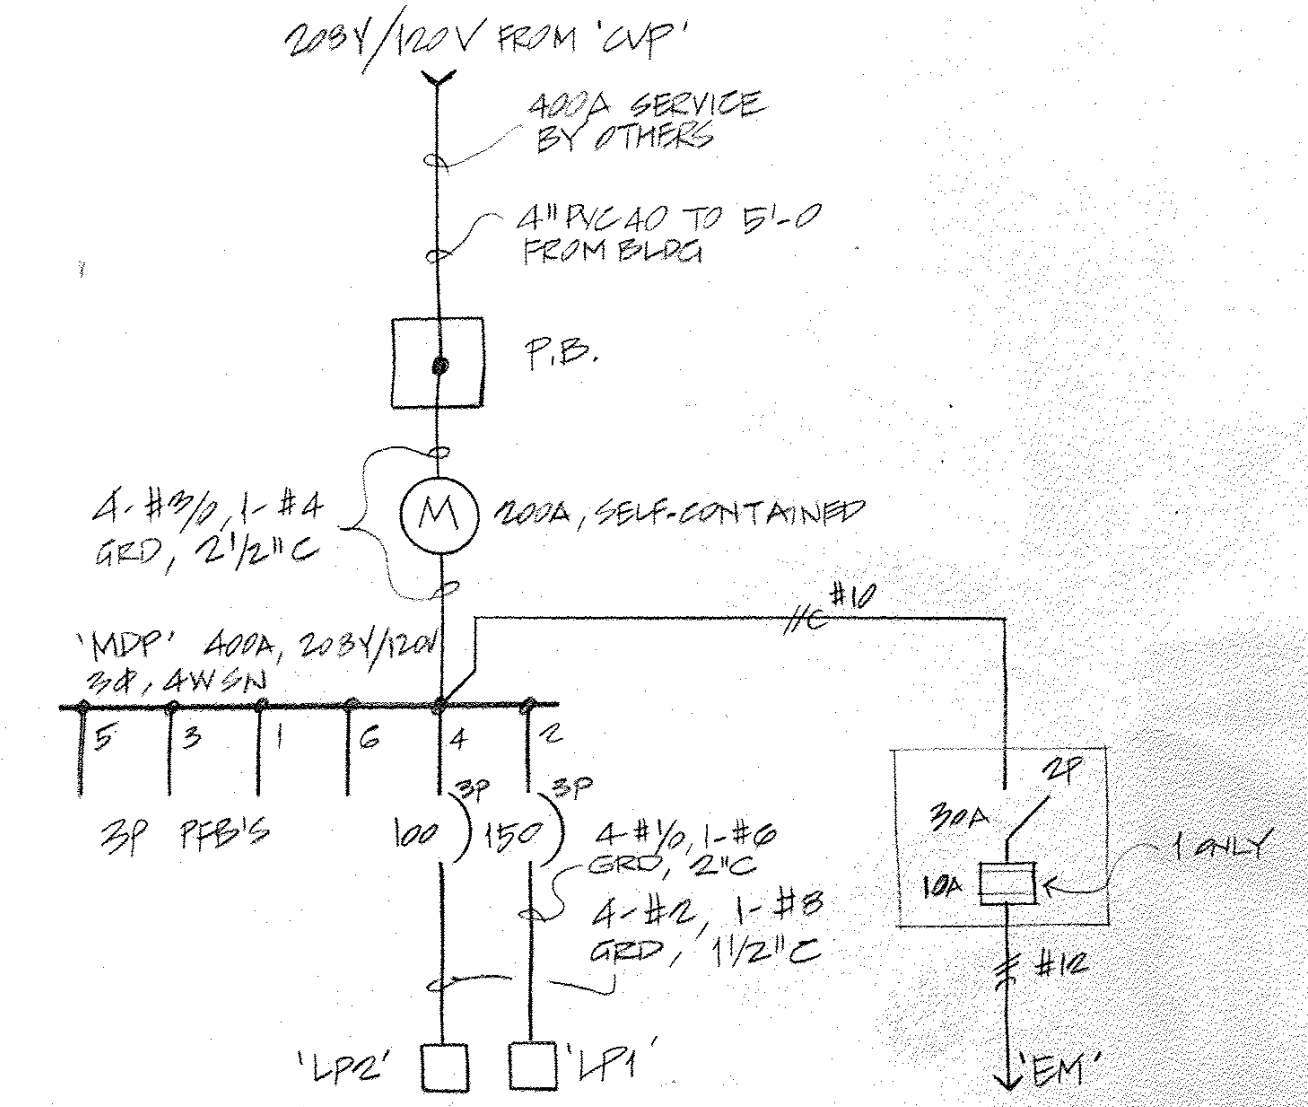 208Y/120V FROM 'CVP'
400A SERVICE
BY OTHERS
4" PVC 40 TO 5'-0
FROM BLDG
P.B.
4-#3/0, 1-#4
GRD, 2 1/2"C
M
200A, SELF-CONTAINED
#10
'MDP' 400A, 208Y/120V
3Φ, 4WSN
5 3 1 6 4 2
3P 3P
3P PFB'S
100 150
4-#1/0, 1-#6
GRD, 2"C
4-#2, 1-#8
GRD, 1 1/2"C
2P
30A
10A
1 ONLY
#12
'LP2' 'LP1'
'EM'